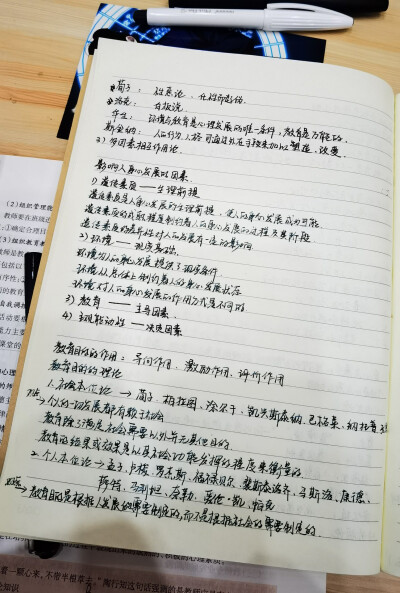 荀子： 性恶论，化性而起伪。
洛克： 白板说
华生： 环境与教育是心理发展的唯一条件，教育是万能的。
斯金纳： 人的行为、人格可通过外在手段来加以塑造、改变
3) 多因素相互作用论。
影响人身心发展的因素：
1) 遗传素质 —— 生理前提
遗传素质是人身心发展的生理前提，
遗传素质的成熟程度制约着人的身心发展的过程及其阶段
遗传素质的差异性对人的发展有一定的影响
2) 环境 —— 现实基础。
环境为人的身心发展提供了
环境从总体上制约着人的身心发展状态
环境对人的身心发展的作用方式是不同的
3) 教育 —— 主导因素。
4) 主观能动性 —— 决定因素
教育目的的作用：导向作用、激励作用、评价作用
教育目的的理论
1. 社会本位论 → 荀子、柏拉图、涂尔干、凯兴斯泰纳、巴格莱、纳托普
→ 个人的一切发展都有赖于社会
教育除了满足社会需要以外并无其他目的
教育的结果或效果是以其社会功能发挥的程度来衡量的
2. 个人本位论 → 孟子、卢梭、罗杰斯、福禄贝尔、裴斯泰洛齐、马斯洛、康德、
萨特、马利坦、奈勒、爱伦·凯、帕克
→ 教育目的是根据人发展的需要制定的，而不是根据社会的需要制定的
(2) 组织管理能
教师要在班级
①确定合理目
(3) 组织教育教